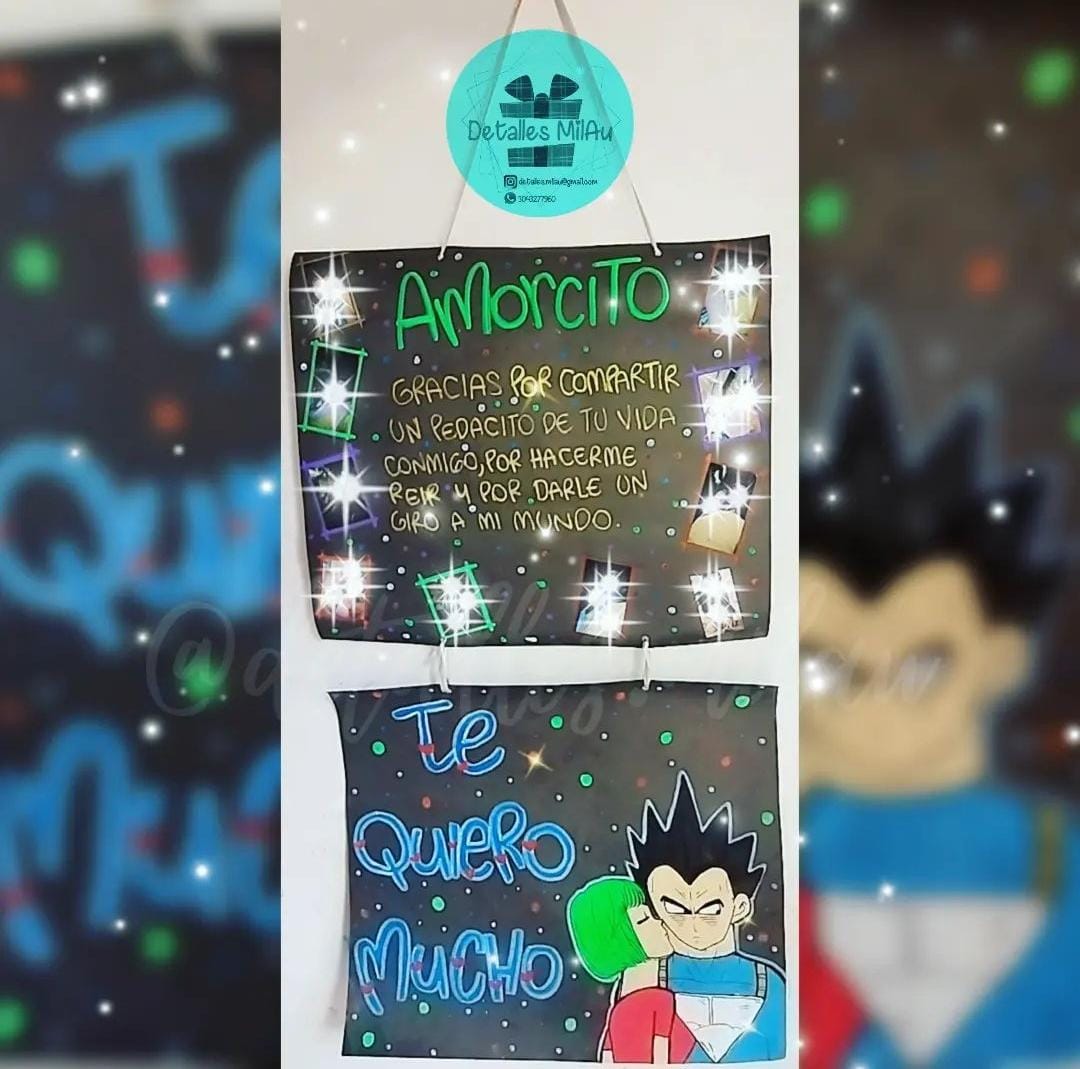 Detalles MilAu
detalles.milau@gmail.com
3043277960
AMorciTo
GRACIAS POR COMPARTIR
UN PEDACITO DE TU VIDA
CONMIGO, POR HACERME
REIR Y POR DARLE UN
GIRO A MI MUNDO.
Te
QuieRO
MuCHO